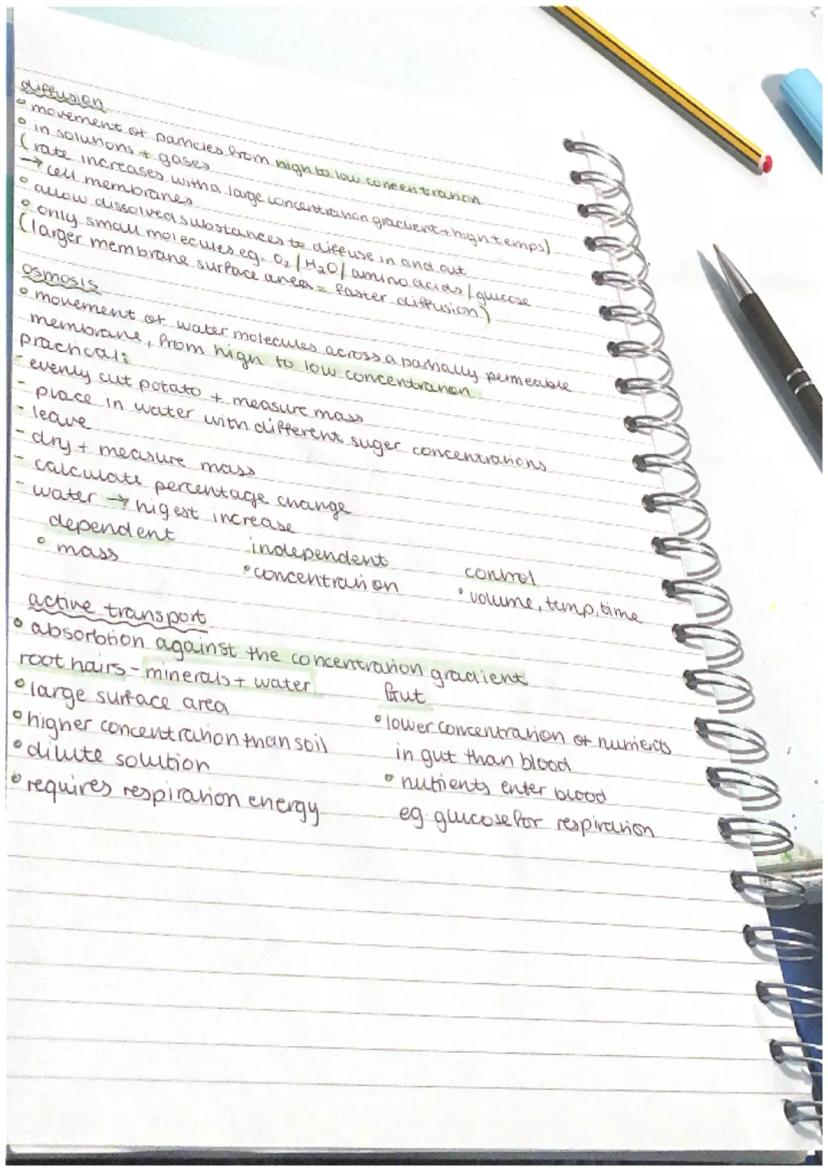 diffusion
• movement of particles from high to low concentration
• in solutions + gases
( rate increases with a large concentration gradient + high temps)
→ cell membranes
• allow dissolved substances to diffuse in and out
• only small molecules eg. O2 / H2O / amino acids / glucose
(larger membrane surface areas = faster diffusion)
osmosis
• movement of water molecules across a partially permeable
membrane, from high to low concentration
practical:
- evenly cut potato + measure mass
- place in water with different suger concentrations
- leave
- dry + measure mass
- calculate percentage change
- water → higest increase
dependent independent control
• mass • concentration • volume, temp, time
active transport
• absorbtion against the concentration gradient
root hairs - minerals + water Gut
• large surface area • lower concentration of nutrients
• higher concentration than soil in gut than blood
• dilute solution • nutrients enter blood
• requires respiration energy eg. glucose for respiration